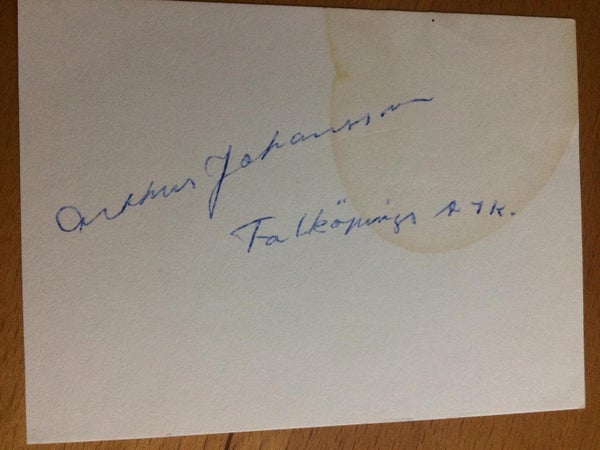 Arthur Johansson
Falköpings A I K.